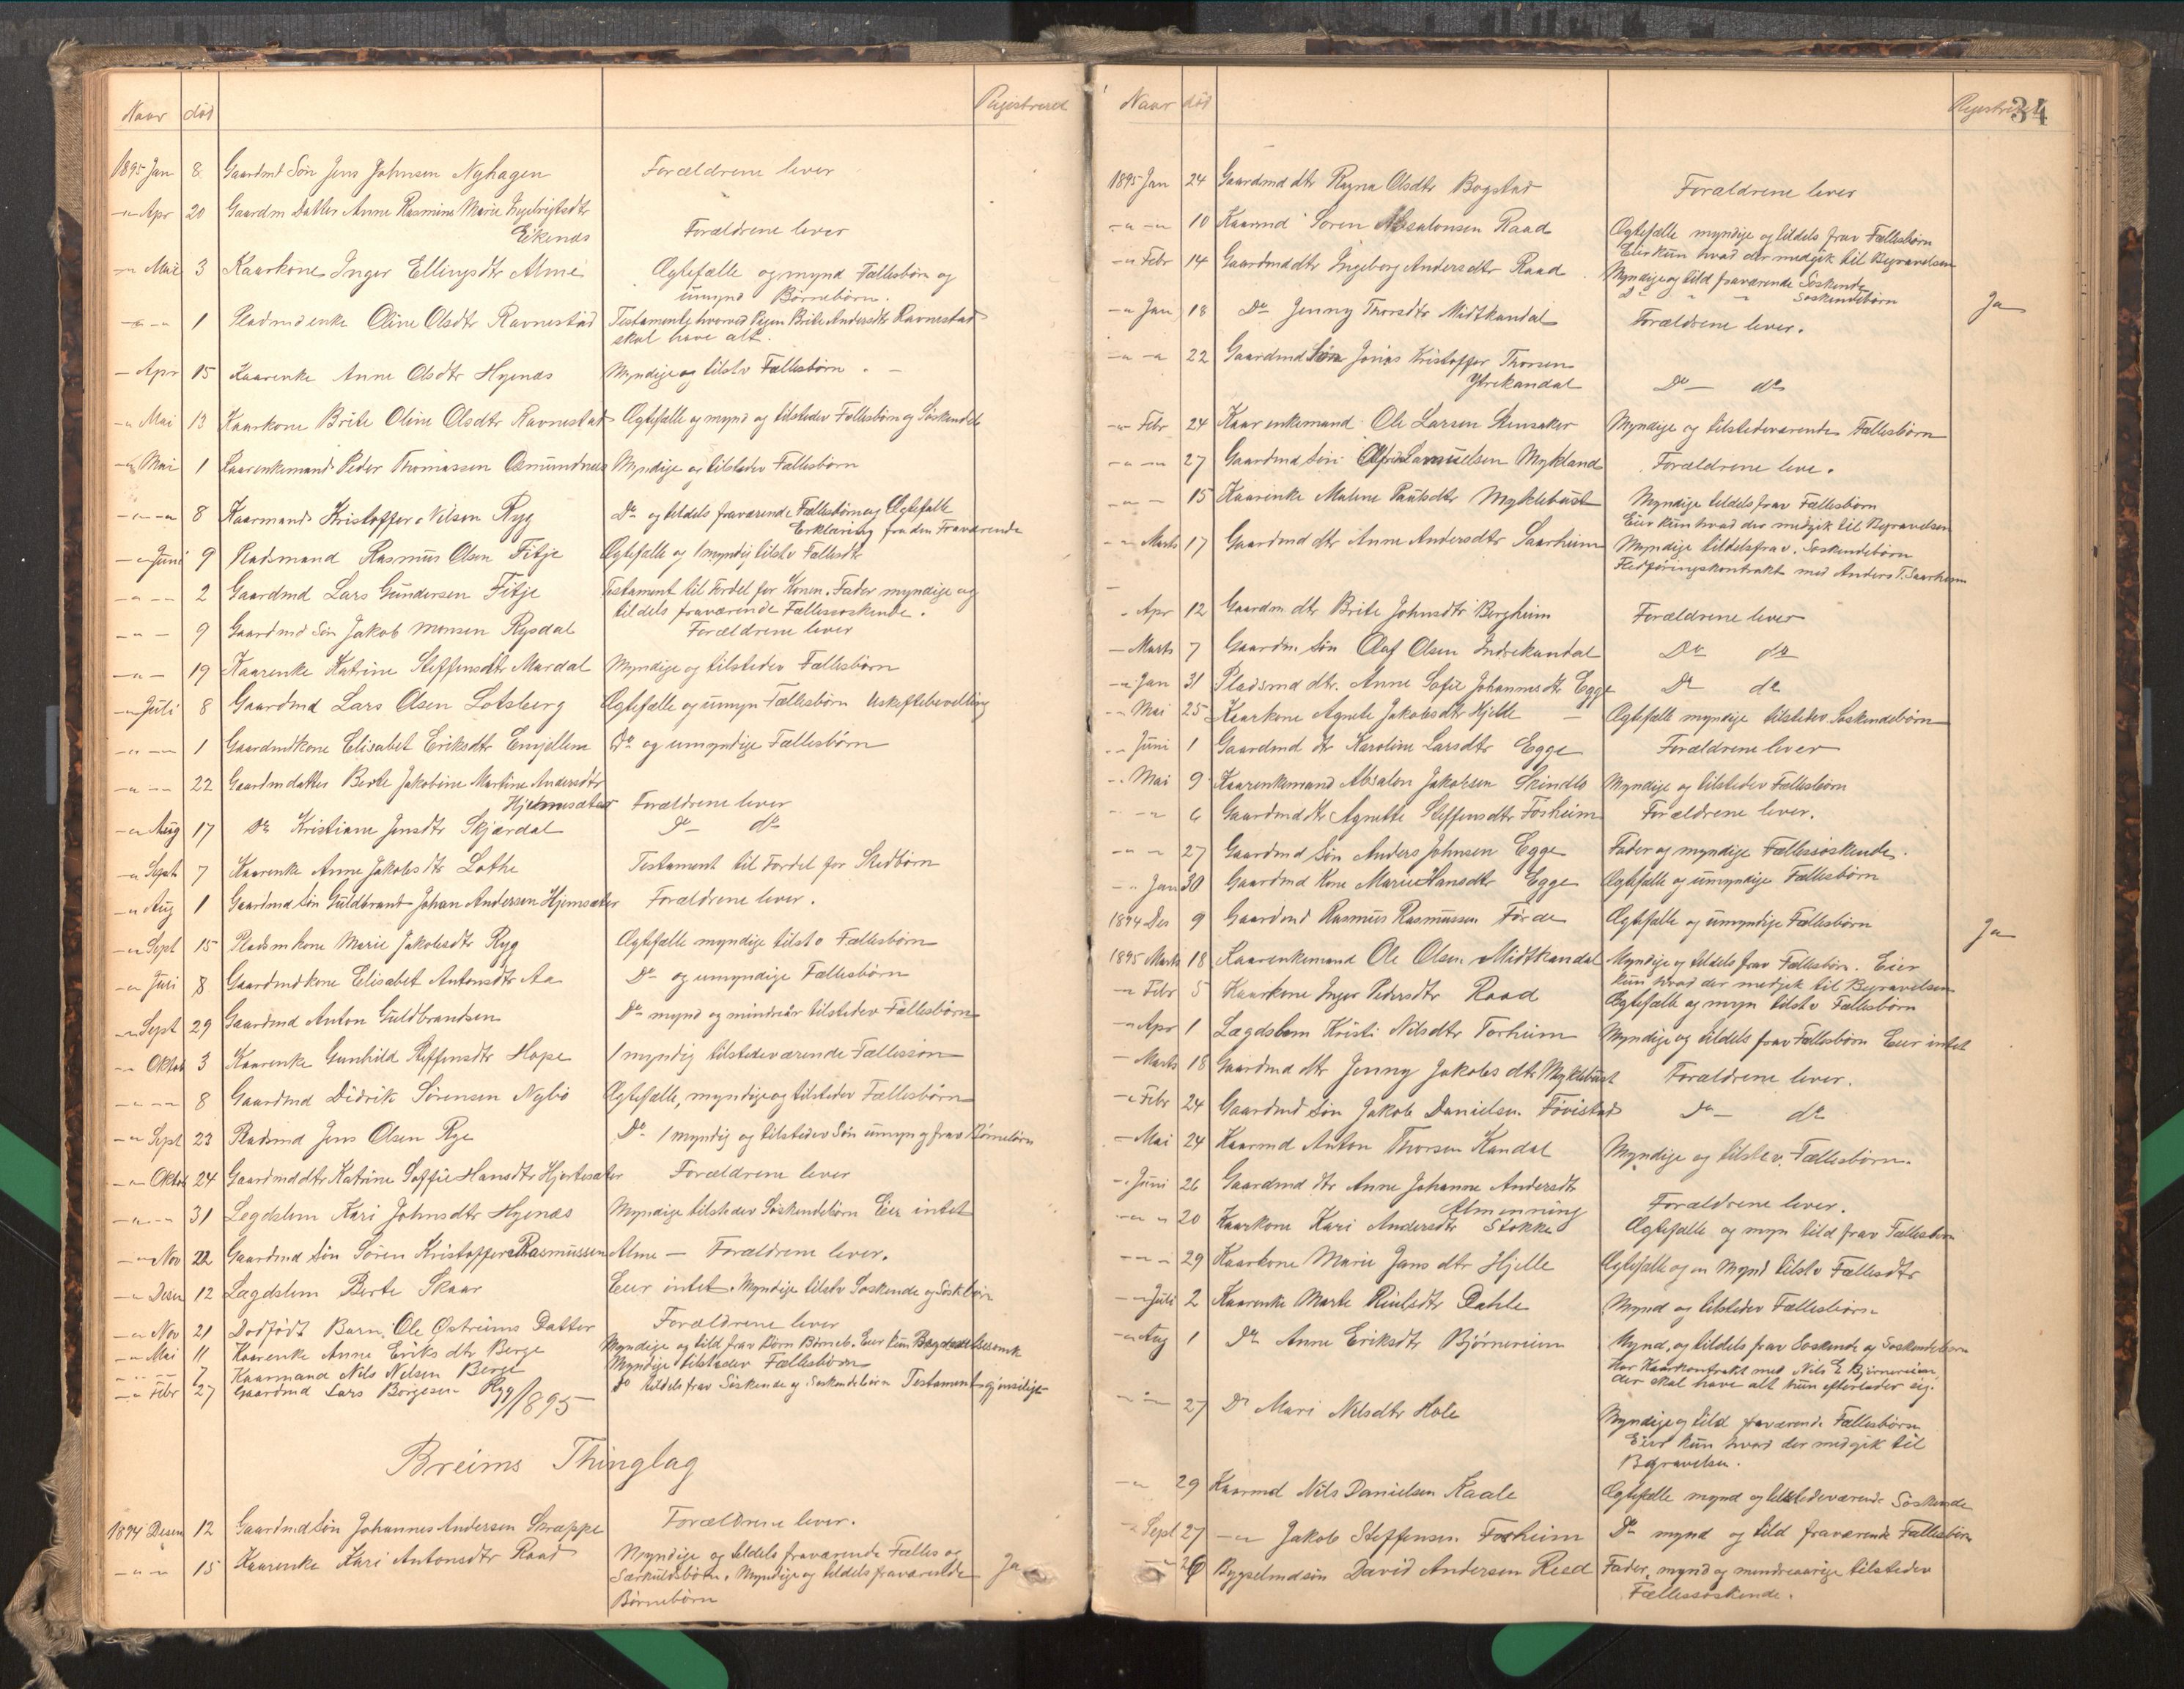 Naar død Registreret
1895 Jan 8 Gaardmd Søn Jens Johnsen Nyhagen Forældrene lever
-"- Apr 20 Gaardm Datter Anne Rasmine Marie Ingebrigtsdtr
Eikenæs Forældrene lever
-"- Mai 3 Kaarkone Inger Ellingsdtr Alme Ægtefælle og mynd Fællesbørn og
umynd Børnebørn.
-"- - 1 Pladsmd enke Oline Olsdtr Ravnestad Testament, hvorved Pigen Brite Andersdtr Ravnestad
skal have alt.
- Apr 15 Kaarenke Anne Olsdtr Hyenæs Myndige og tilstv Fællesbørn
-"- Mai 13 Kaarkone Brite Oline Olsdtr Ravnestad Ægtefælle og mynd og tilstedev Fællesbørn og Søskendeb
-"- Mai 1 Kaarenkemand Peder Thomassen Osmundnes Myndige og tilstedev Fællesbørn
-"- -"- 8 Kaarmand Kristoffer Nilsen Ryg Do og tildels fraværende Fællesbørn og Ægtefælle
Erklæring fra den Fraværende
-"- Juni 9 Pladsmand Rasmus Olsen Fitje Ægtefælle og 1 myndig tilstv Fællesdtr
-"- -- 2 Gaardmd Lars Gundersen Fitje Testament til Fordel for Konen. Fader myndige og
tildels fraværende Fællessøskende.
-"- - 9 Gaardmd Søn Jakob Monsen Rysdal Forældrene lever
-"- - 19 Kaarenke Katrine Steffensdtr Mardal Myndige og tilstedev Fællesbørn
-"- Juli 8 Gaardmd Lars Olsen Lotsberg Ægtefælle og umyn Fællesbørn Uskiftebevilling
-"- -- 1 Gaardmdkone Elisabet Eriksdtr Emjellem Do og umyndige Fællesbørn
-"- -- 22 Gaardmdatter Berte Jakobine Martine Andersdtr
Hjelmesæter Forældrene lever
-"- Aug 17 Do Kristiane Jensdtr Skjærdal Do - do
-"- Sept 7 Kaarenke Anne Jakobsdtr Lothe Testament til Fordel for Stedbørn
-"- Aug 1 Gaardmd Søn Guldbrand Johan Andersen Hjemsæter Forældrene lever.
-"- Sept 15 Pladsmkone Marie Jakobsdtr Ryg Ægtefælle myndige tilstv Fællesbørn
-"- Juni 8 Gaardmdkone Elisabet Antonsdtr Aa Do og umyndige Fællesbørn
-"- Sept 29 Gaardmd Anton Guldbrandsen Do mynd og mindreår tilstedev Fællesbørn
-"- Oktob 3 Kaarenke Gunhild Steffensdtr Hope 1 myndig tilstedeværende Fællessøn
-"- -- 8 Gaardmd Didrik Sørensen Nybø Ægtefælle, myndige og tilstedev Fællesbørn
-"- Sept 23 Pladsmd Jens Olsen Rye Do 1 myndig og tilstedev Søn umyn og frav Børnebørn
-"- Oktob 24 Gaardmddtr Katrine Soffie Hansdtr Hjortesæter Forældrene lever
-"- -- 31 Legdslem Kari Johnsdtr Hyenæs Myndige tilstedev Søskendebørn Eier intet
-"- Nov 22 Gaardmd Søn Søren Kristoffer Rasmussen Alme - Forældrene lever.
-"- Desn 12 Lægdslem Berte Skaar Eier intet. Myndige tilstv Søskende og Søskbørn
-"- Nov 21 Dødfødt Barn, Ole Østreims Datter Forældrene lever
-"- Mai 11 Kaarenke Anne Eriksdtr Berge Myndige og tild frav Børn Børneb. Eier kun
-- -- 7 Kaarmand Nils Nilsen Berge Myndige tilstedev Fællesbørn
-"- Febr 27 Gaardmd Lars Børgesen Ryg 1/1895 Do tildels frav Søskende og Søskendebørn Testament gjensidigt
Breims Thinglag
1894 Desem 12 Gaardmd Søn Johannes Andersen Skrappe Forældrene lever.
-"- -"- 15 Kaarenke Kari Antonsdtr Raad Myndige og tildels fraværende Fælles og
Særkuldsbørn. Myndige og tildels fraværende Ja
Børnebørn
Naar død Registreret 34
1895 Jan 24 Gaardmd dtr Ragna Olsdtr Bogstad Forældrene lever
-"- -"- 10 Kaarmd Søren Absalonsen Raad Ægtefælle myndige og tildels frav Fællesbørn
Eier kun hvad der medgik til Begravelsen
-"- Febr 14 Gaardmd dtr Ingeborg Andersdtr Raad Myndige og tild fraværende Søskende
Do " - Søskendebørn Ja
-"- Jan 18 Do Jenny Thorsdtr Midtkandal Forældrene lever.
-"- -"- 22 Gaardmd Søn Jonas Kristoffer Thorsen
Ytrekandal Do - do
-"- Febr 24 Kaarenkemand Ole Larsen Stensaker Myndige og tilstedeværende Fællesbørn
-"- -"- 27 Gaardmd Søn Alfred Samuelsen Mykland Forældrene leve.
-"- - 15 Kaarenke Malene Paulsdtr Myklebust Myndige tildels frav Fællesbørn
Eier kun hvad der medgik til Begravelsen
-"- Marts 17 Gaardmd dtr Anne Andersdtr Saarheim Myndige tildels frav. Søskendebørn
Fledføringskontrakt med Anders T. Saarheim
- Apr 12 Gaardm dtr Brite Johnsdtr Bergheim Forældrene lever
- Marts 7 Gaardm. Søn Olaf Olsen Indrekandal Do do
-"- Jan 31 Pladsmd dtr. Anne Sofie Johannesdtr Egge Do do
-"- Mai 25 Kaarkone Agnete Jakobsdtr Hjelle - Ægtefælle myndige tilstedev Søskendebørn
-"- Juni 1 Gaardmd dtr Karoline Larsdtr Egge Forældrene lever
-"- Mai 9 Kaarenkemand Absalon Jakobsen Skindlo Myndige og tilstedev Fællesbørn
-"- 6 Gaardmd dtr Agnette Steffensdtr Fosheim Forældrene lever.
-"- - 27 Gaardmd Søn Anders Johnsen Egge Fader og myndige Fællessøskende.
-"- Jan 30 Gaardmd Kone Marie Hansdtr Egge Ægtefælle og umyndige Fællesbørn
1894 Des 9 Gaardmd Rasmus Rasmussen Førde Ægtefælle og umyndige Fællesbørn Ja
1895 Marts 18 Kaarenkemand Ole Olsen Midtkandal Myndige og tildels frav Fællesbørn. Eier
kun hvad der medgik til Begravelsen
-"- Febr 5 Kaarkone Inger Pedersdtr Raad Ægtefælle og myn tilstv Fællesbørn
-"- Apr 1 Lægdslem Kristi Nilsdtr Forheim Myndige og tildels frav Fællesbørn Eier intet
- Marts 18 Gaardmd dtr Jenny Jakobsdtr Myklebust Forældrene lever.
-"- Febr 24 Gaardmd Søn Jakob Danielsen Føvistad Do - do
- Mai 24 Kaarmd Anton Thorsen Kandal Myndige og tilstev. Fællesbørn.
-"- Juni 26 Gaardmd dtr Anne Johanne Andersdtr
Almenning Forældrene lever.
-"- " 20 Kaarkone Kari Andersdtr Stokke Ægtefælle og myn tild frav Fællesbørn
-"- - 29 Kaarkone Marie Jansdtr Hjelle Ægtefælle og en Mynd tilstv Fællesdtr
-"- Juli 2 Kaarenke Marte Dahle Mynd og tilstedev Fællesbørn
-"- Aug 1 Do Anne Eriksdtr Bjørnereim Mynd, og tildels frav Søskende og Søskendebørn
Har Kaarkontrakt med Nils E. Bjørnereim,
der skal have alt hun efterlader sig.
-"- 27 Do Mari Nilsdtr Hole Myndige og tild fraværende Fællesbørn
Eier kun hvad der medgik til
Begravelsen.
-"- 29 Kaarmd Nils Danielsen Kaale Ægtefælle mynd og tilstedeværende Søskende
-"- Sept 27 -"- Jakob Steffensen Forheim Do mynd og tild fraværende Fællesbørn
26 Bygselmdsøn David Andersen Reed Fader, mynd og mindreaarige tilstedev
Fællessøskende.